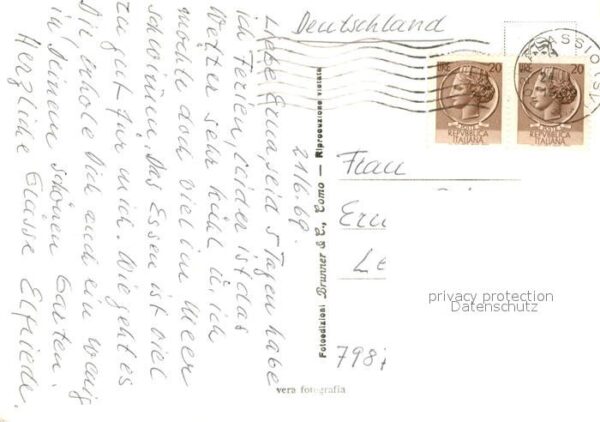 Deutschland
21/6.69.
Liebe Erna, seid 5 Tagen habe
ich Ferien, leider ist das
Wetter sehr kühl u. ich
möchte doch viel im Meer
schwimmen. Das Essen ist viel
zu gut für mich. Wie geht es
Dir, erhole Dich auch ein wenig
in Deinem schönen Garten.
Herzliche Grüsse Elfriede.
Fotoedizioni Brunner & C., Como — Riproduzione vietata
vera fotografia
ALASSIO (SV)
LIRE 20
REPVBBLICA
ITALIANA
LIRE 20
REPVBBLICA
ITALIANA
Frau
Ern
Le
privacy protection
Datenschutz
798